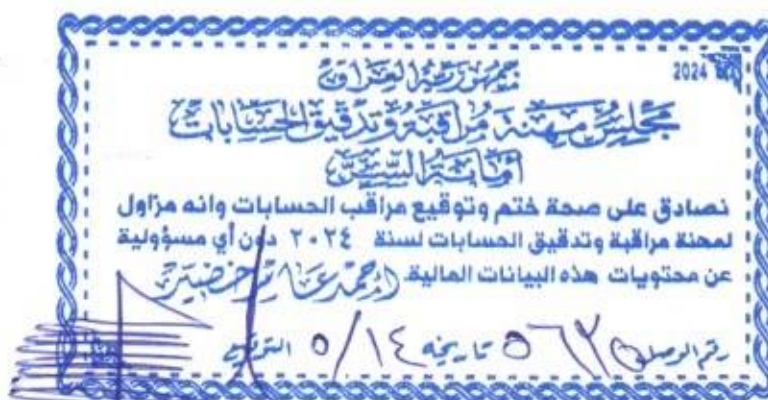 2024
جمهورية العراق
مجلس مهنة مراقبة وتدقيق الحسابات
أمانة السر
نصادق على صحة ختم وتوقيع مراقب الحسابات وانه مزاول
لمهنة مراقبة وتدقيق الحسابات لسنة ٢٠٢٤ دون أي مسؤولية
عن محتويات هذه البيانات المالية
رقم الوصل تاريخه ٥/١٤ التوقيع